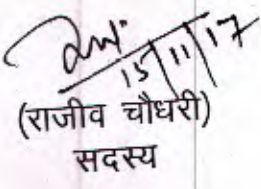 15/11/17
(राजीव चौधरी)
सदस्य